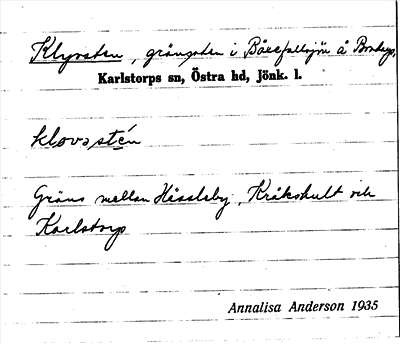 Klyvsten, gränssten i Bäckfallssjön å
Karlstorps sn, Östra hd, Jönk. l.
klovəstén
Gräns mellan Hässleby, Kråkshult och
Karlstorp
Annalisa Anderson 1935